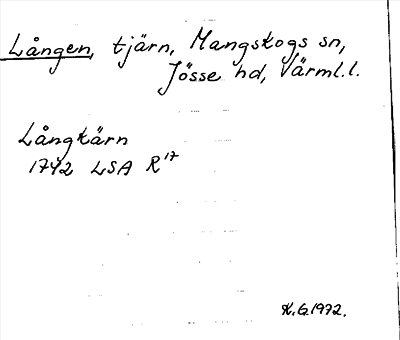 Lången, tjärn, Mangskogs sn,
Jösse hd, Värml.l.
Långkärn
1742 LSA R¹⁷
K.G.1972.